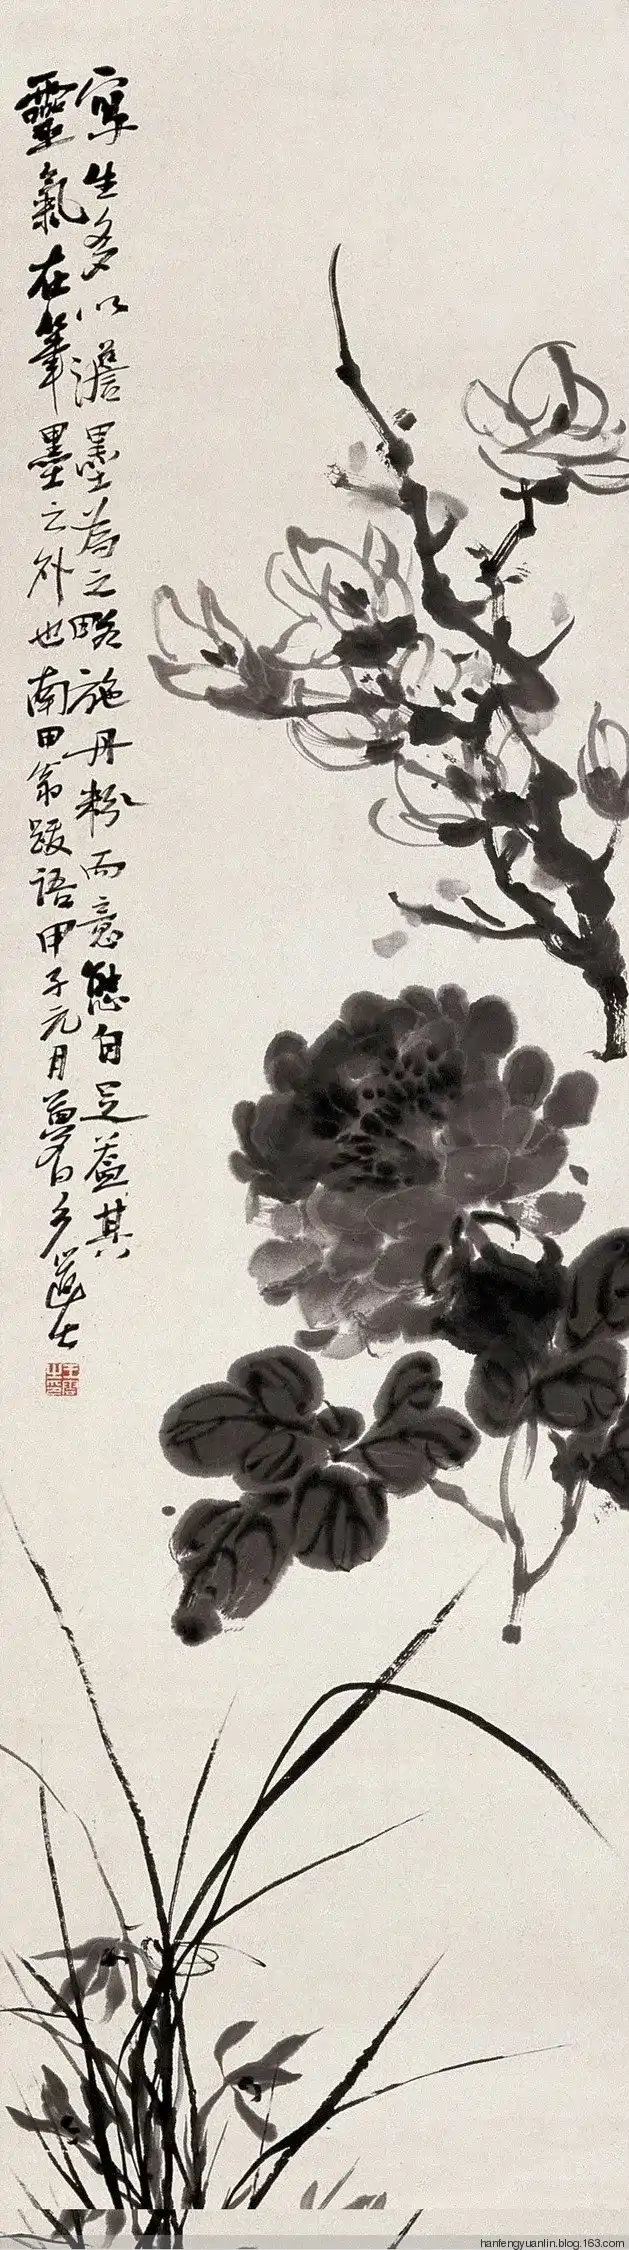 寫生多以澹墨為之略施丹粉而意態自足蓋其
靈氣在筆墨之外也南田翁跋語甲子元月夢白道士
王雲之印
hanfengyuanlin.blog.163.com